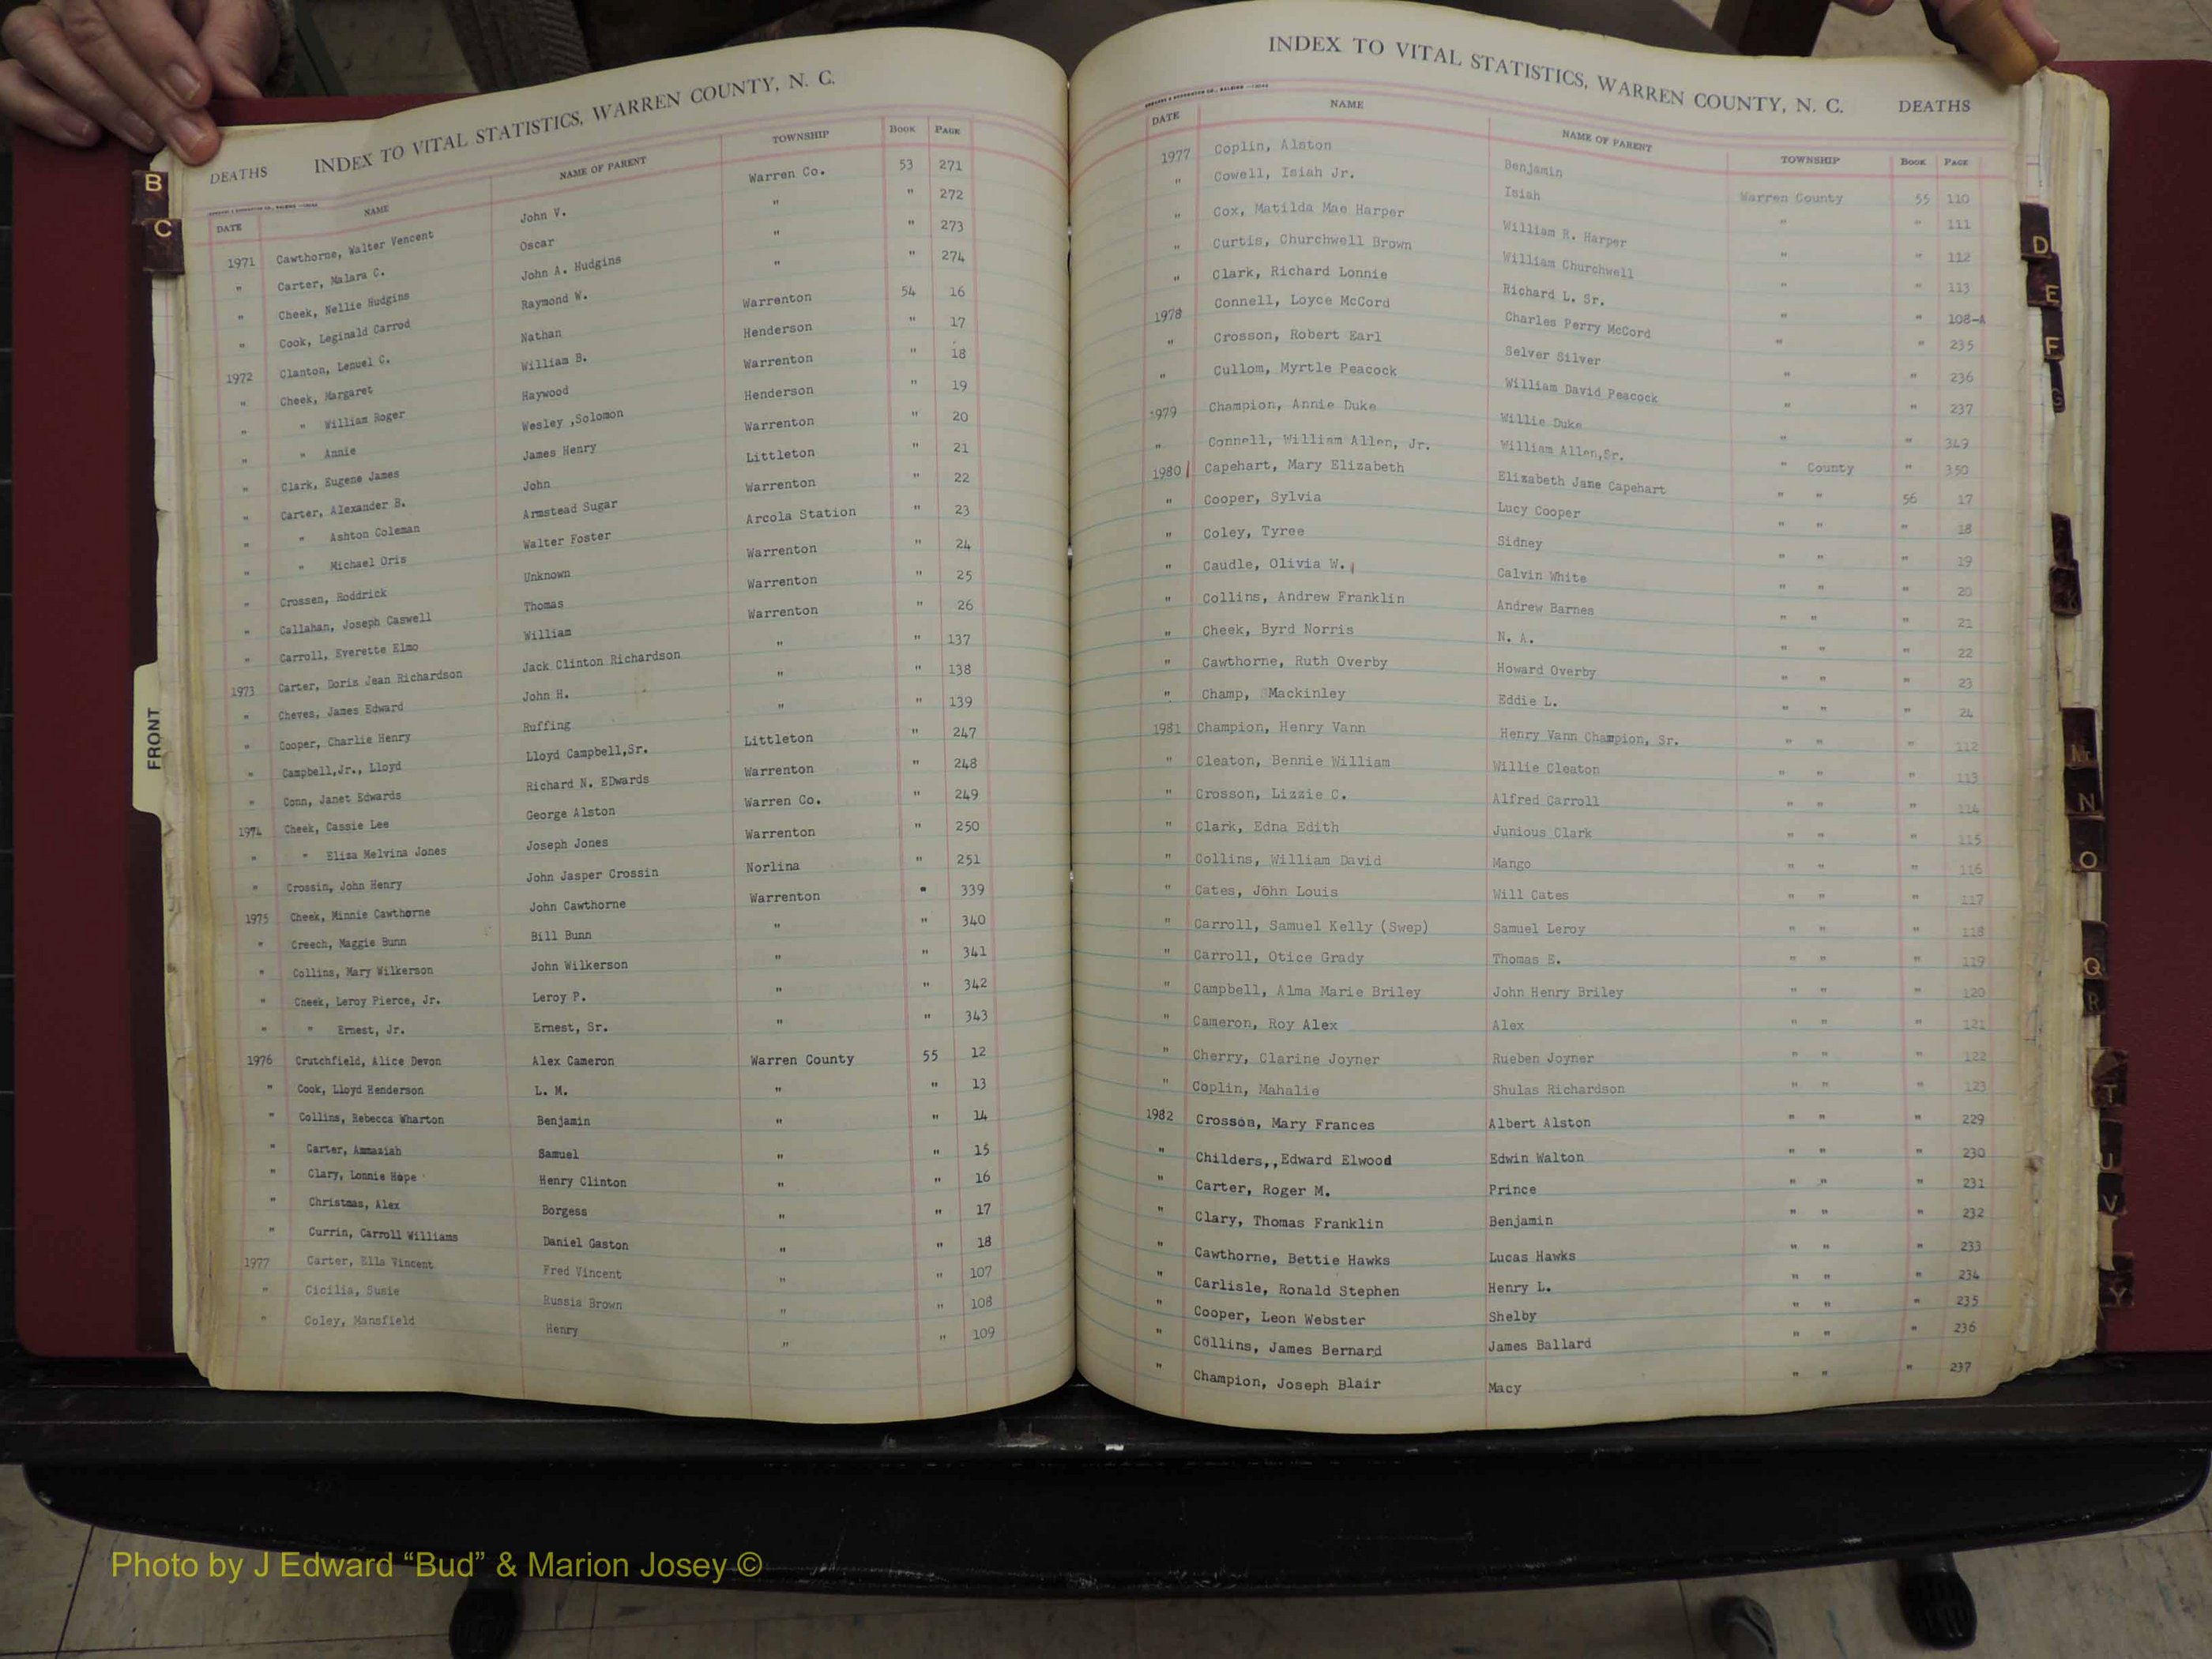 DEATHS INDEX TO VITAL STATISTICS, WARREN COUNTY, N. C.
DATE NAME NAME OF PARENT TOWNSHIP BOOK PAGE
1971 Cawthorne, Walter Vencent John V. Warren Co. 53 271
" Carter, Malara C. Oscar " " 272
" Cheek, Nellie Hudgins John A. Hudgins " " 273
" Cook, Leginald Carrod Raymond W. " " 274
1972 Clanton, Lenuel C. Nathan Warrenton 54 16
" Cheek, Margaret William B. Henderson " 17
" " William Roger Haywood Warrenton " 18
" " Annie Wesley ,Solomon Henderson " 19
" Clark, Eugene James James Henry Warrenton " 20
" Carter, Alexander B. John Littleton " 21
" " Ashton Coleman Armstead Sugar Warrenton " 22
" " Michael Oris Walter Foster Arcola Station " 23
" Crossen, Roddrick Unknown Warrenton " 24
" Callahan, Joseph Caswell Thomas Warrenton " 25
" Carroll, Everette Elmo William Warrenton " 26
1973 Carter, Doris Jean Richardson Jack Clinton Richardson " " 137
" Cheves, James Edward John H. " " 138
" Cooper, Charlie Henry Ruffing " " 139
" Campbell,Jr., Lloyd Lloyd Campbell,Sr. Littleton " 247
" Conn, Janet Edwards Richard N. EDwards Warrenton " 248
1974 Cheek, Cassie Lee George Alston Warren Co. " 249
" " Eliza Melvina Jones Joseph Jones Warrenton " 250
" Crossin, John Henry John Jasper Crossin Norlina " 251
1975 Cheek, Minnie Cawthorne John Cawthorne Warrenton " 339
" Creech, Maggie Bunn Bill Bunn " " 340
" Collins, Mary Wilkerson John Wilkerson " " 341
" Cheek, Leroy Pierce, Jr. Leroy P. " " 342
" " Ernest, Jr. Ernest, Sr. " " 343
1976 Crutchfield, Alice Devon Alex Cameron Warren County 55 12
" Cook, Lloyd Henderson L. M. " " 13
" Collins, Rebecca Wharton Benjamin " " 14
" Carter, Ammaziah Samuel " " 15
" Clary, Lonnie Hope Henry Clinton " " 16
" Christmas, Alex Borgess " " 17
" Currin, Carroll Williams Daniel Gaston " " 18
1977 Carter, Ella Vincent Fred Vincent " " 107
" Cicilia, Susie Russia Brown " " 108
" Coley, Mansfield Henry " " 109
INDEX TO VITAL STATISTICS, WARREN COUNTY, N. C. DEATHS
DATE NAME NAME OF PARENT TOWNSHIP BOOK PAGE
1977 Coplin, Alston Benjamin Warren County 55 110
" Cowell, Isiah Jr. Isiah " " 111
" Cox, Matilda Mae Harper William R. Harper " " 112
" Curtis, Churchwell Brown William Churchwell " " 113
" Clark, Richard Lonnie Richard L. Sr. " " 108-A
1978 Connell, Loyce McCord Charles Perry McCord " " 235
" Crosson, Robert Earl Selver Silver " " 236
" Cullom, Myrtle Peacock William David Peacock " " 237
1979 Champion, Annie Duke Willie Duke " " 349
" Connell, William Allen, Jr. William Allen,Sr. " County " 350
1980 Capehart, Mary Elizabeth Elizabeth Jane Capehart " " 56 17
" Cooper, Sylvia Lucy Cooper " " " 18
" Coley, Tyree Sidney " " " 19
" Caudle, Olivia W. Calvin White " " " 20
" Collins, Andrew Franklin Andrew Barnes " " " 21
" Cheek, Byrd Norris N. A. " " " 22
" Cawthorne, Ruth Overby Howard Overby " " " 23
" Champ, Mackinley Eddie L. " " " 24
1981 Champion, Henry Vann Henry Vann Champion, Sr. " " " 112
" Cleaton, Bennie William Willie Cleaton " " " 113
" Crosson, Lizzie C. Alfred Carroll " " " 114
" Clark, Edna Edith Junious Clark " " " 115
" Collins, William David Mango " " " 116
" Cates, John Louis Will Cates " " " 117
" Carroll, Samuel Kelly (Swep) Samuel Leroy " " " 118
" Carroll, Otice Grady Thomas E. " " " 119
" Campbell, Alma Marie Briley John Henry Briley " " " 120
" Cameron, Roy Alex Alex " " " 121
" Cherry, Clarine Joyner Rueben Joyner " " " 122
" Coplin, Mahalie Shulas Richardson " " " 123
1982 Crosson, Mary Frances Albert Alston " " " 229
" Childers,,Edward Elwood Edwin Walton " " " 230
" Carter, Roger M. Prince " " " 231
" Clary, Thomas Franklin Benjamin " " " 232
" Cawthorne, Bettie Hawks Lucas Hawks " " " 233
" Carlisle, Ronald Stephen Henry L. " " " 234
" Cooper, Leon Webster Shelby " " " 235
" Collins, James Bernard James Ballard " " " 236
" Champion, Joseph Blair Macy " " " 237
B
C
FRONT
D
E
F
G
N
O
Q
R
T
U
V
Y
Photo by J Edward “Bud” & Marion Josey ©